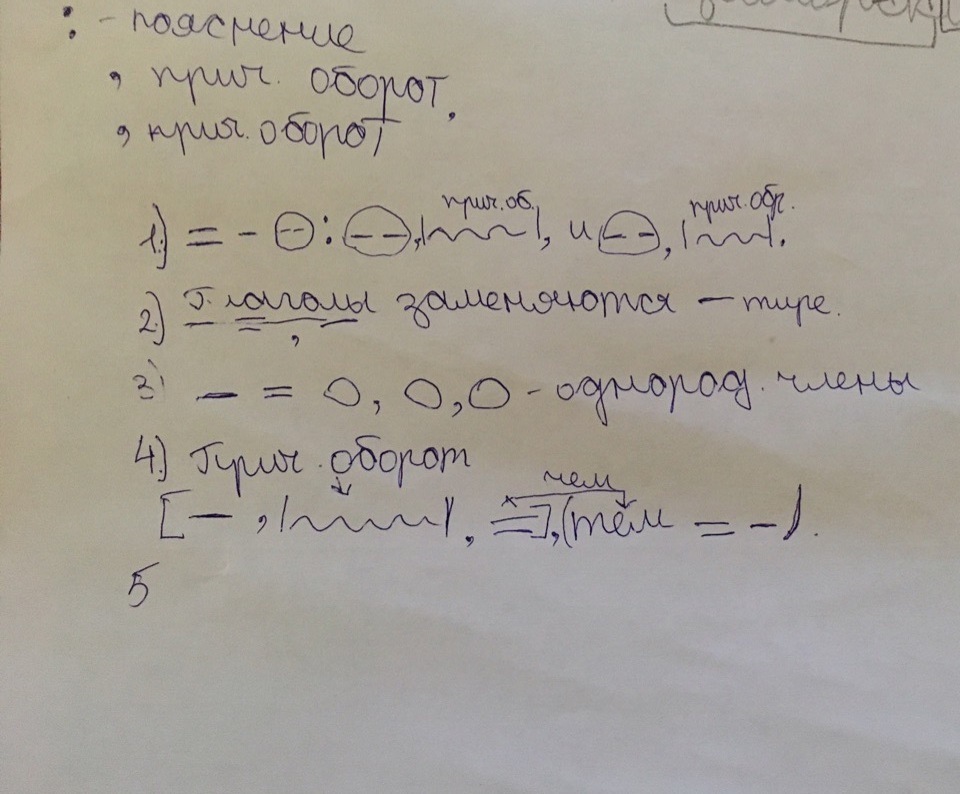 : - пояснение
, прич. оборот,
, прич. оборот
прич. об. прич. обр.
1.) = - : , , и , .
2.) Глаголы заменяются – тире.
3) — = О, О, О - однород. члены
4.) Прич. оборот
чем
[—, | |, =], (тем = -).
5